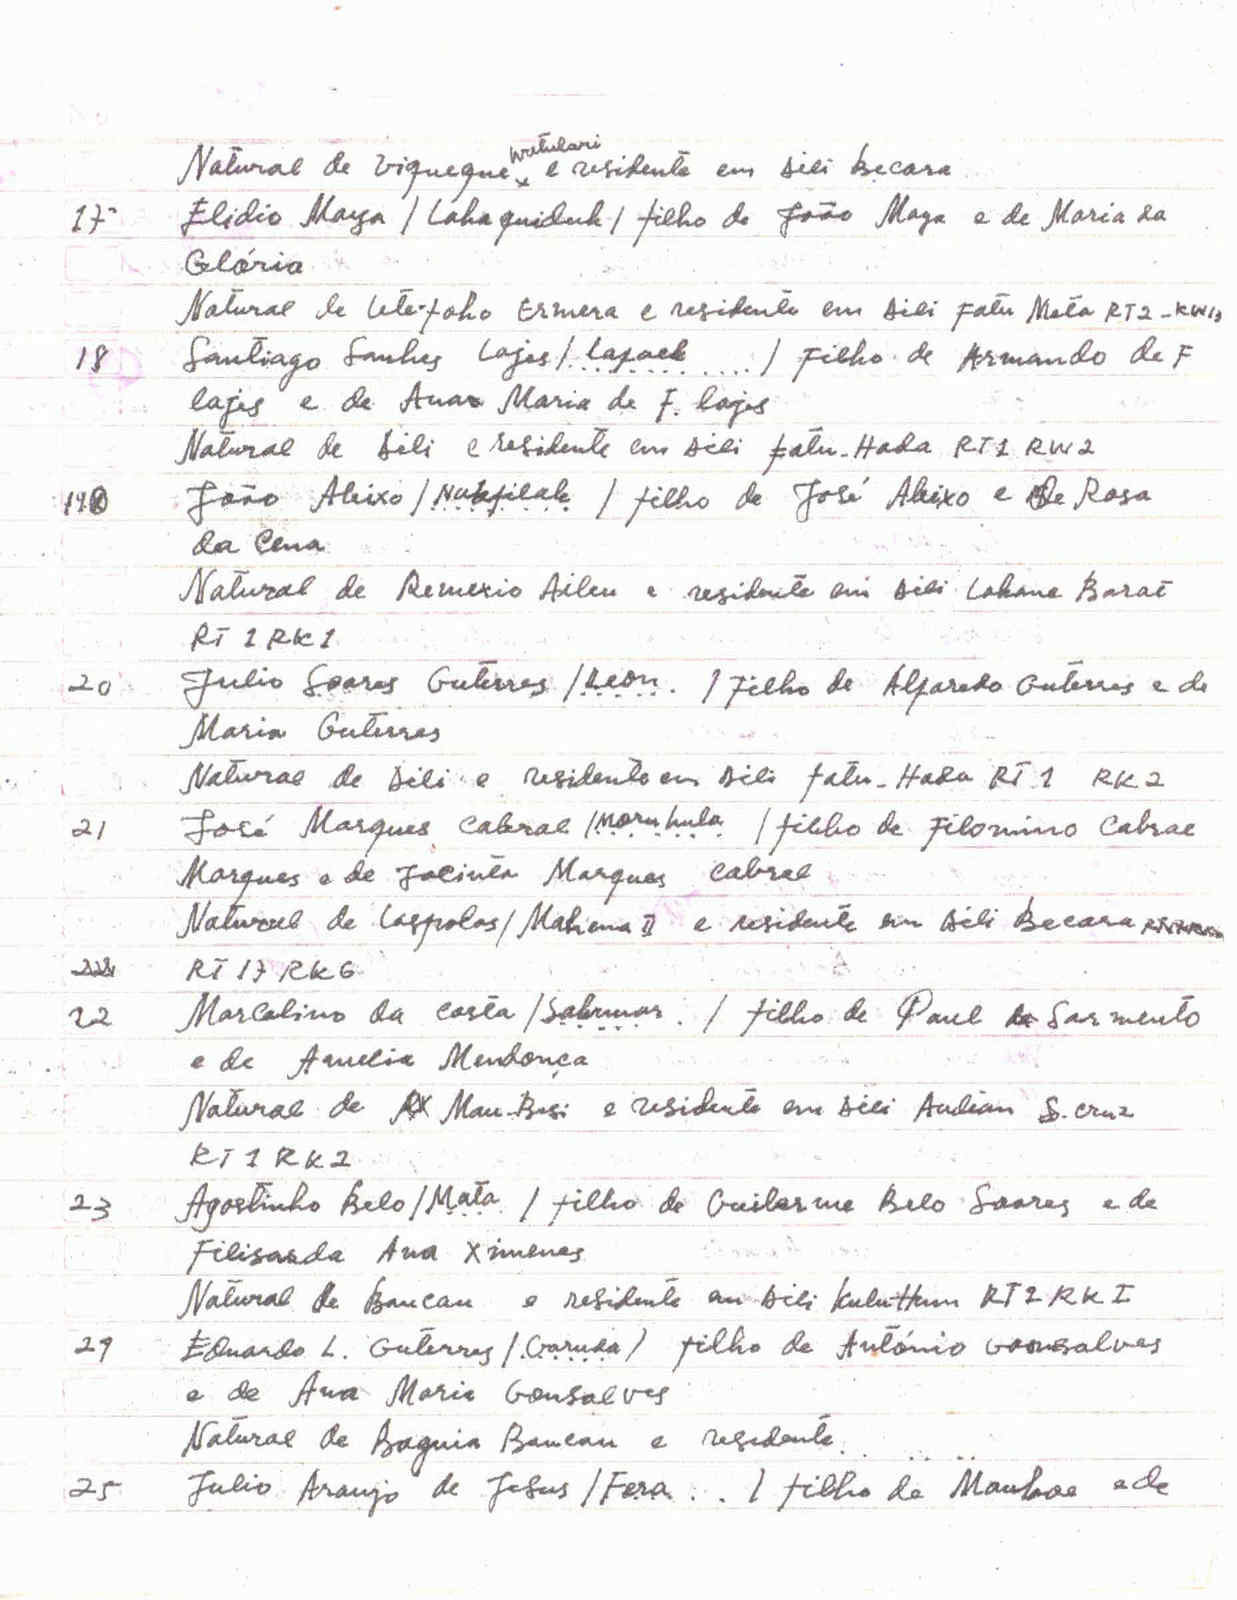 Natural de Viqueque watulari e residente em Dili Becora
17 Elidio Maya / Laha quiduk / filho de João Maya e de Maria da
Glória
Natural de Lete-foho Ermera e residente em Dili Fatu Meta RT2-RW13
18 Santiago Sanhes Lajes / Lapaek / Filho de Armando de F
lajes e de Ana Maria de F. lajes
Natural de Dili e residente em Dili fatu-Hada RT1 RW2
19 João Aleixo / Nakfilak / filho de José Aleixo e de Rosa
da Cena
Natural de Remexio Aileu e residente em Dili Lahane Barat
RT 1 RK1
20 Julio Soares Guterres / Leon. / Filho de Alfaredo Guterres e de
Maria Guterres
Natural de Dili e residente em Dili fatu-Hada RT 1 RK2
21 José Marques Cabral / Moruhula / filho de Filomino Cabral
Marques e de Jacinta Marques Cabral
Natural de Laspolas / Mahena II e residente em Dili Becora
RT 17 RK6
22 Marcelino da Costa / Sabrumar. / filho de Paul Sarmento
e de Amelia Mendonça
Natural de Mau-Besi e residente em Dili Audian S. cruz
RT 1 RK2
23 Agostinho Belo / Mata / filho de Guilerme Belo Soares e de
Filisarda Ana Ximenes
Natural de Baucau e residente em Dili Kuluhum RT2 RK I
24 Eduardo L. Guterres / Garuda / filho de António Gonsalves
e de Ana Maria Gonsalves
Natural de Baguia Baucau e residente. . . . . .
25 Julio Araujo de Jesus / Fera. . . / filho de Mauloe e de